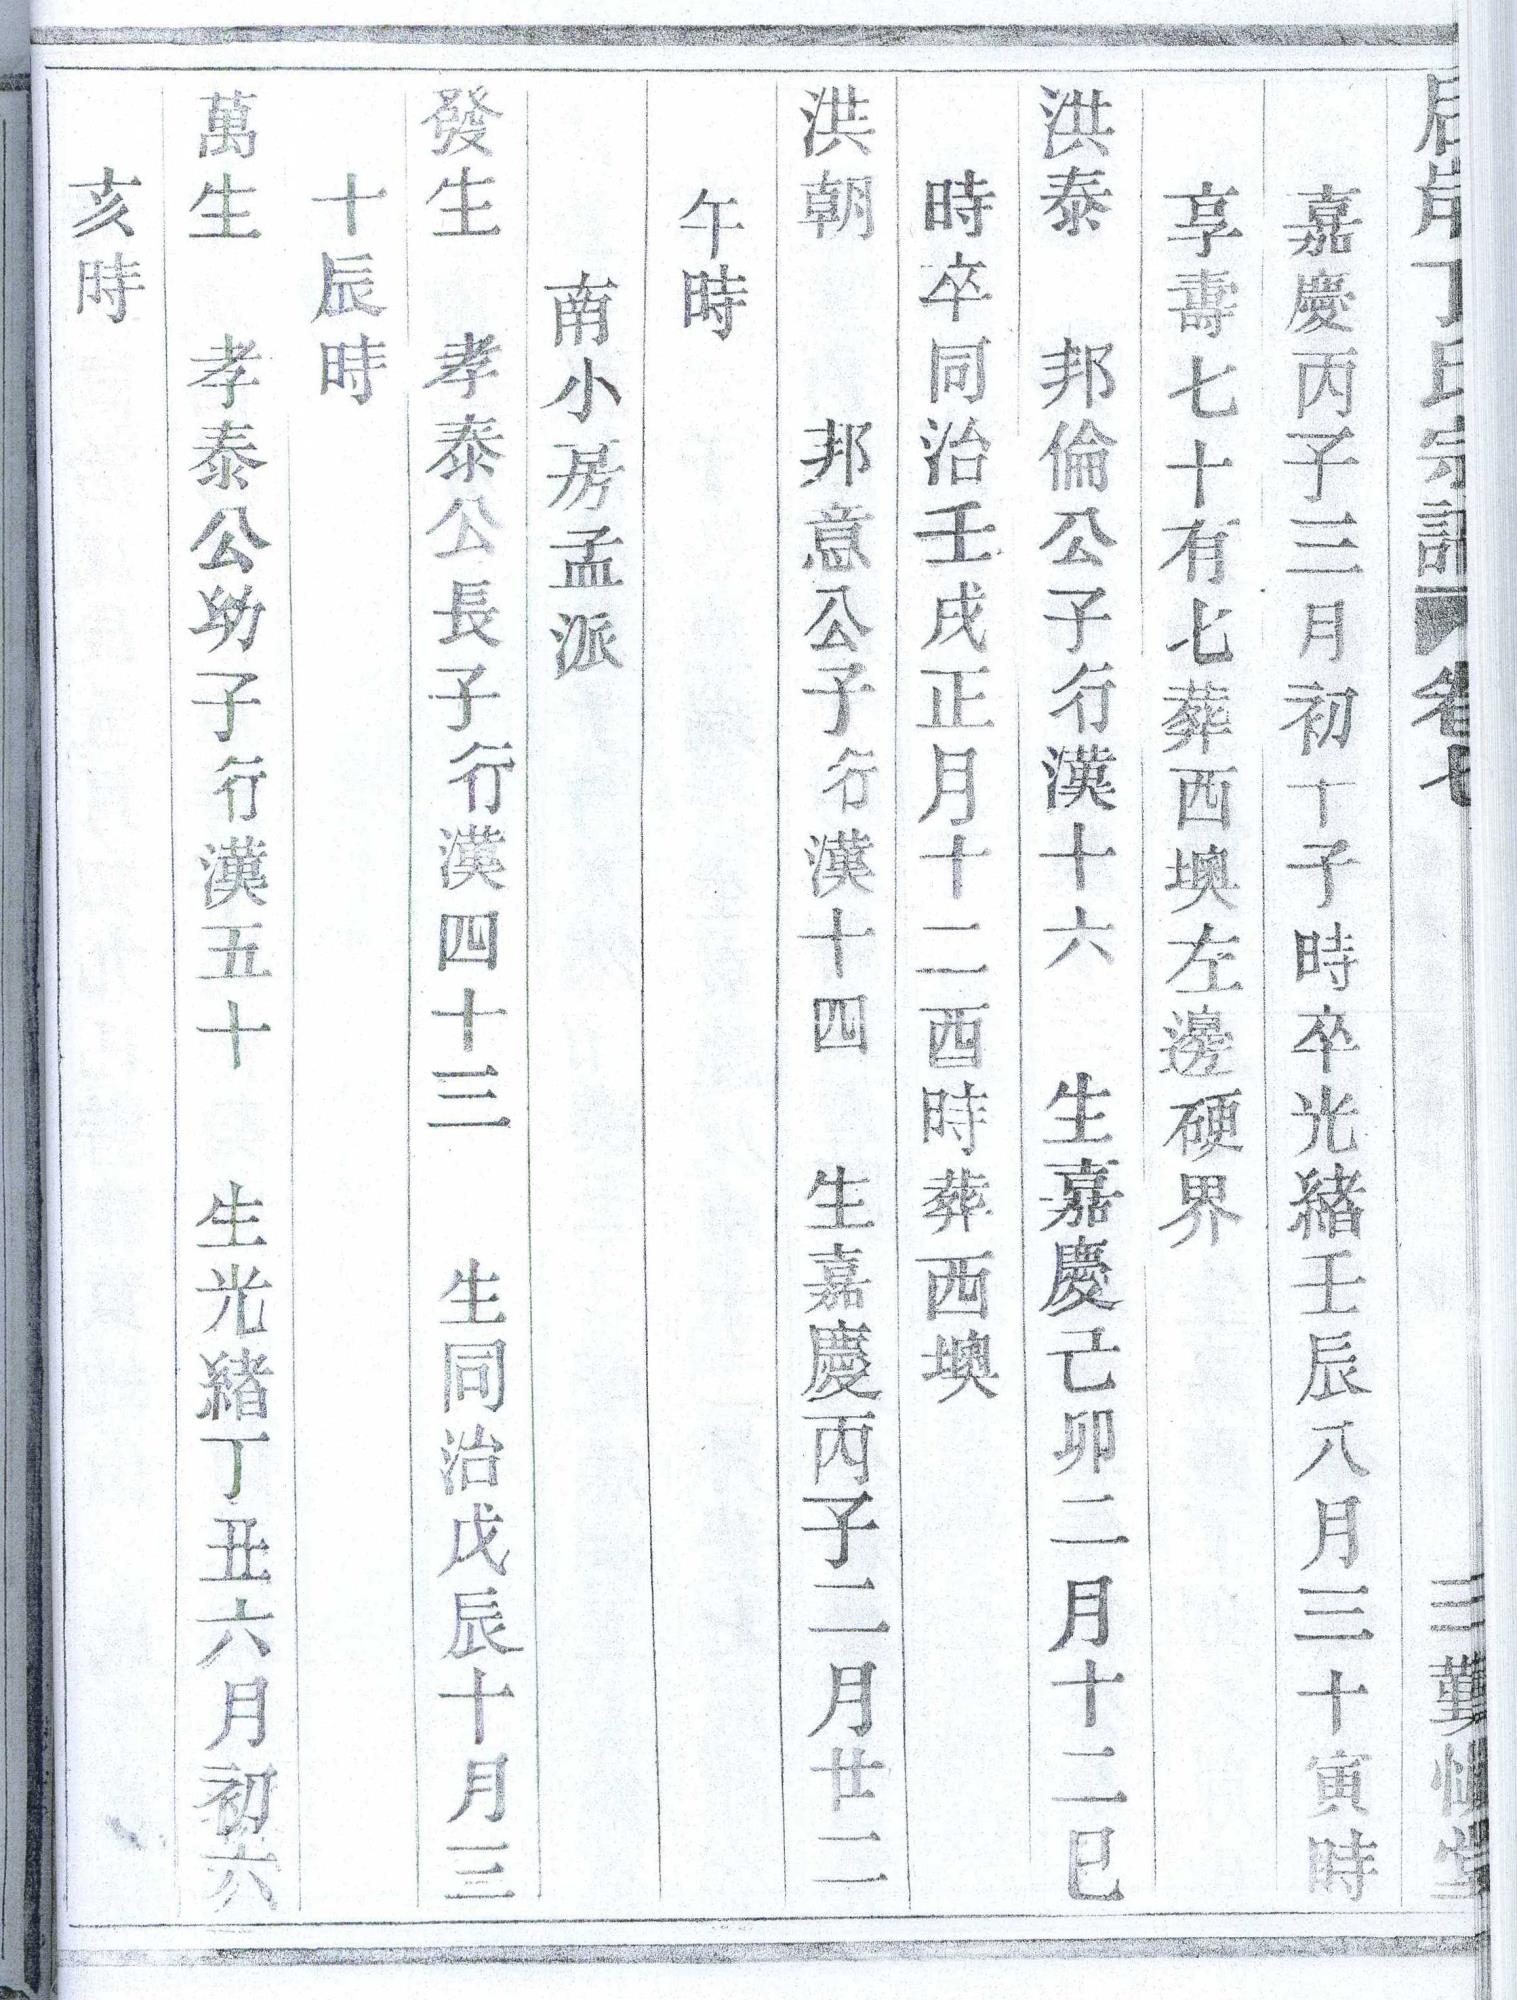 丁氏宗譜 卷七 三 勤慎堂
嘉慶丙子三月初十子時卒光緒壬辰八月三十寅時
享壽七十有七葬西墺左邊硬界
洪泰 邦倫公子行漢十六 生嘉慶己卯二月十二巳
時卒同治壬戌正月十二酉時葬西墺
洪朝 邦意公子行漢十四 生嘉慶丙子二月廿二
午時
南小房孟派
發生 孝泰公長子行漢四十三 生同治戊辰十月三
十辰時
萬生 孝泰公幼子行漢五十 生光緒丁丑六月初六
亥時